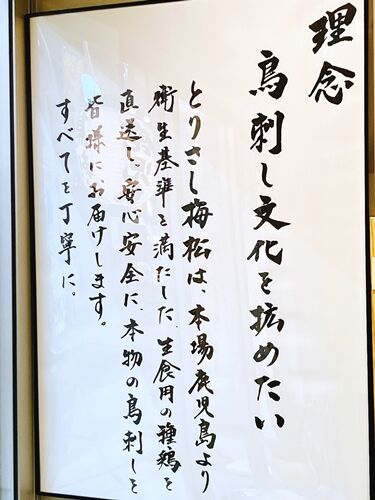 理念
鳥刺し文化を拡めたい
とりさし梅松は、本場鹿児島より
衛生基準を満たした、生食用の種鶏を
直送し、安心安全に、本物の鳥刺しを
皆様にお届けします。
すべてを丁寧に。